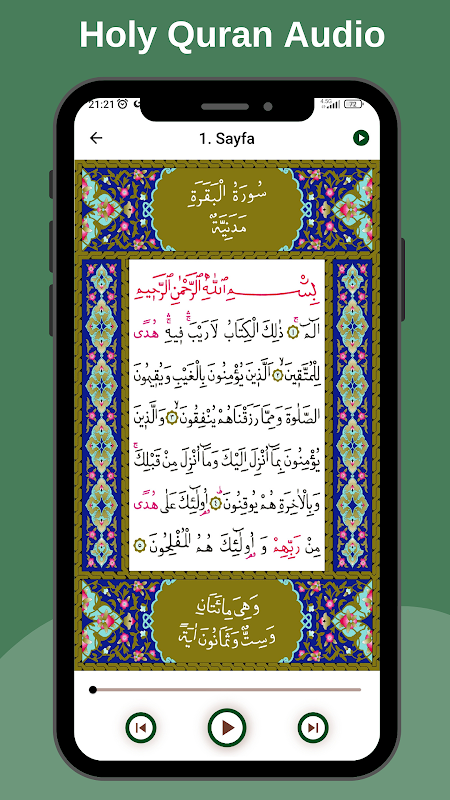 Holy Quran Audio
21:21
4.5G
72
1. Sayfa
سُورَةُ الْبَقَرَةِ
مَدَنِيَّةٌ
بِسْمِ اللّٰهِ الرَّحْمٰنِ الرَّحٖيمِ
الٓمٓ ۚ ﴿١﴾ ذٰلِكَ الْكِتَابُ لَا رَيْبَ ۚ فٖيهِ ۚ هُدًى
لِلْمُتَّقٖينَ ۙ ﴿٢﴾ اَلَّذٖينَ يُؤْمِنُونَ بِالْغَيْبِ وَيُقٖيمُونَ
الصَّلٰوةَ وَمِمَّا رَزَقْنَاهُمْ يُنْفِقُونَ ۙ ﴿٣﴾ وَالَّذٖينَ
يُؤْمِنُونَ بِمَٓا اُنْزِلَ اِلَيْكَ وَمَٓا اُنْزِلَ مِنْ قَبْلِكَ ۚ
وَبِالْاٰخِرَةِ هُمْ يُوقِنُونَ ۜ ﴿٤﴾ اُو۬لٰٓئِكَ عَلٰى هُدًى
مِنْ رَبِّهِمْ وَ اُو۬لٰٓئِكَ هُمُ الْمُفْلِحُونَ ﴿٥﴾
وَهِيَ مِائَتَانِ
وَسِتٌّ وَثَمَانُونَ اٰيَةً